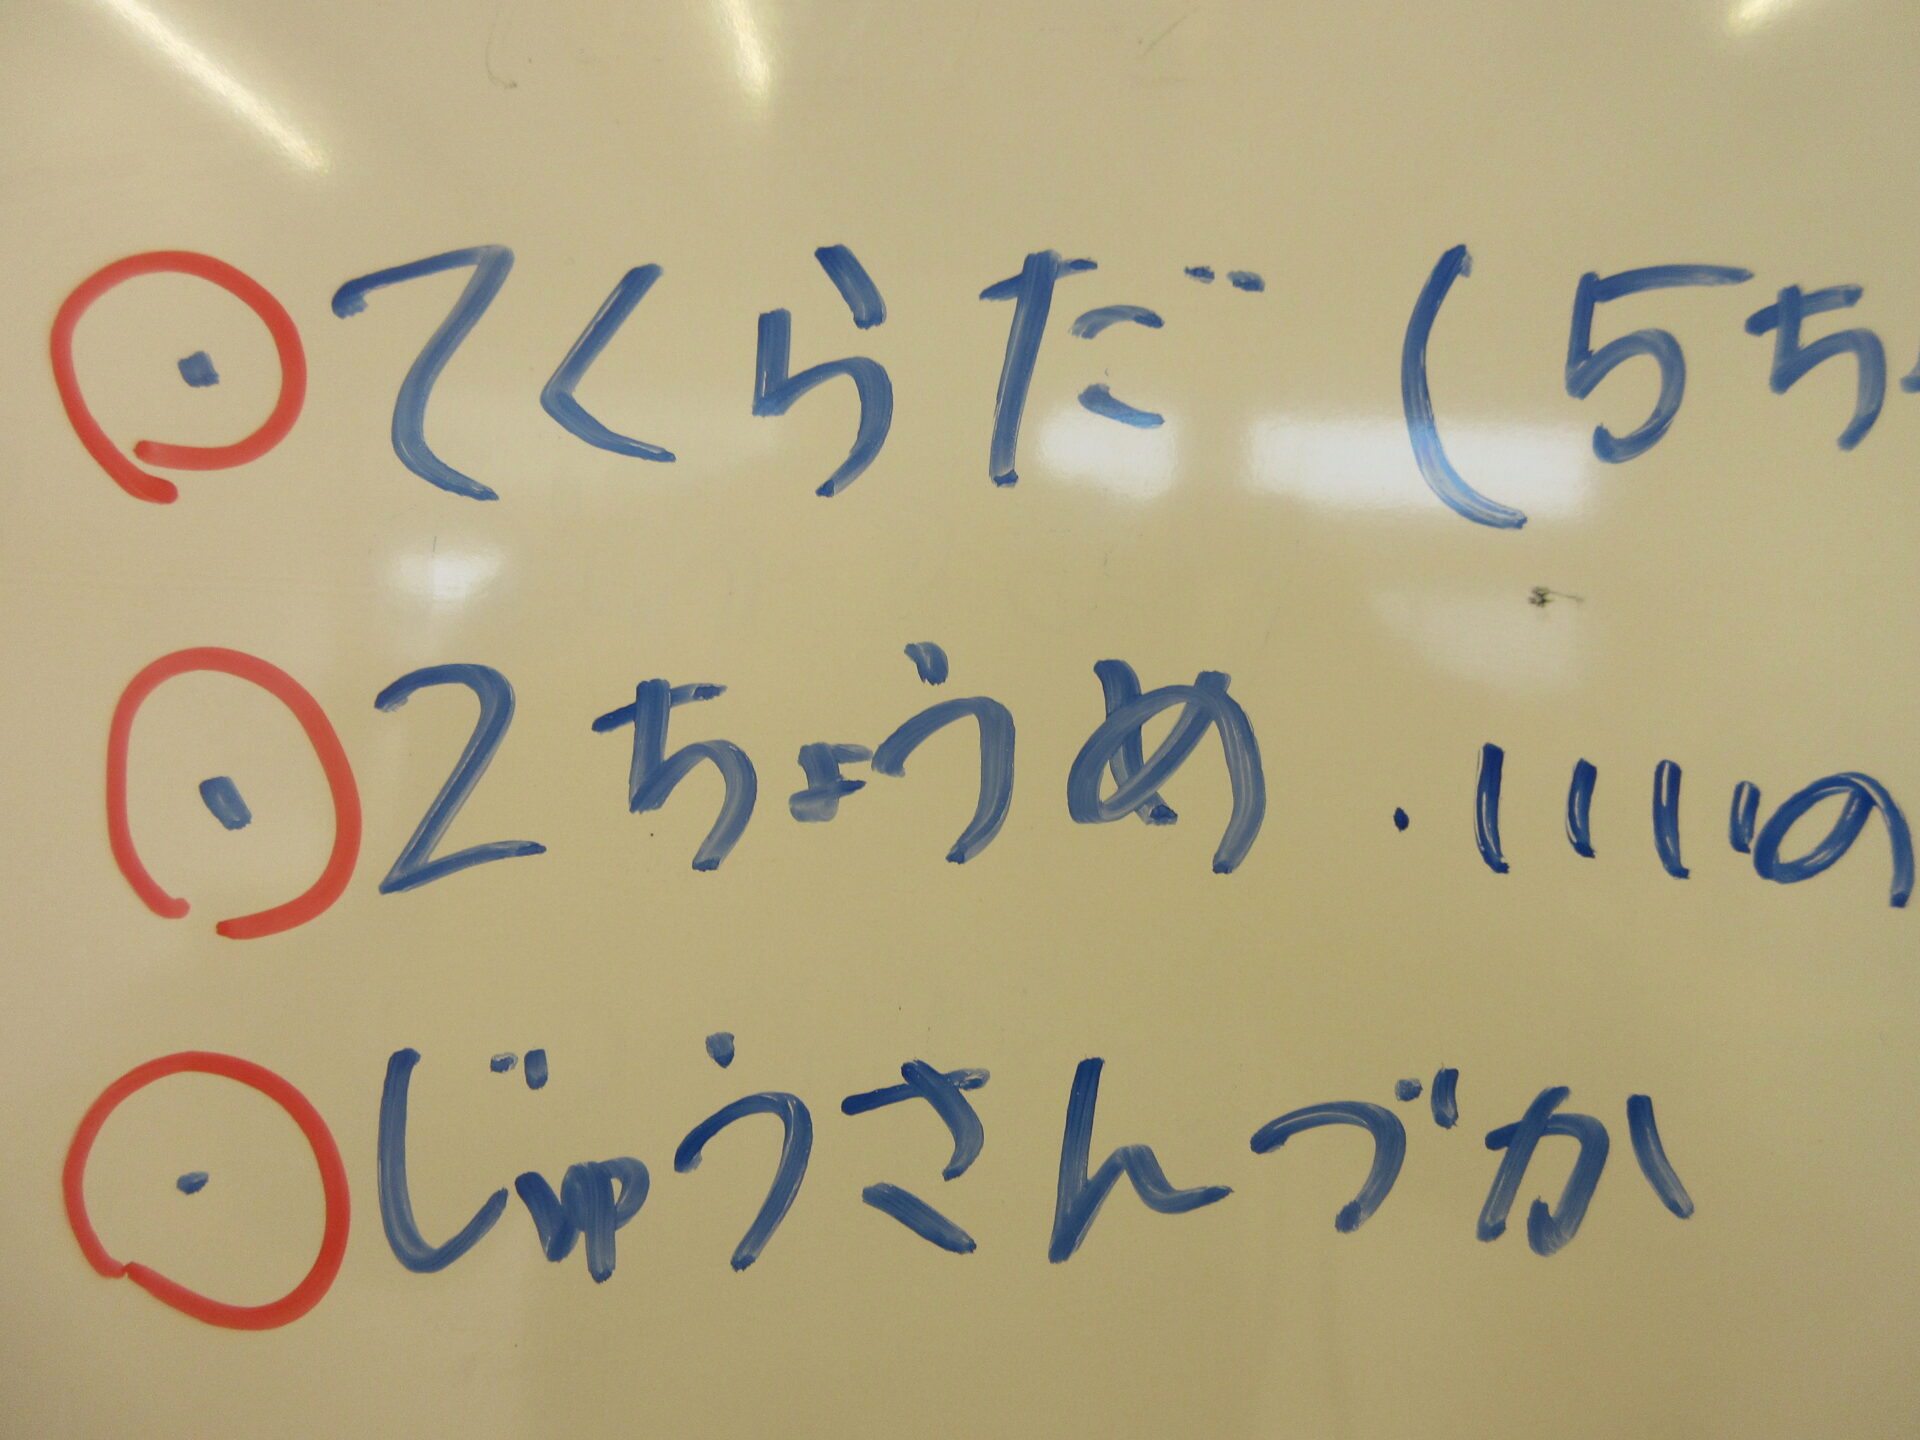 ・てくらだ (5ち
・2ちょうめ ・いいいの
・じゅうさんづか